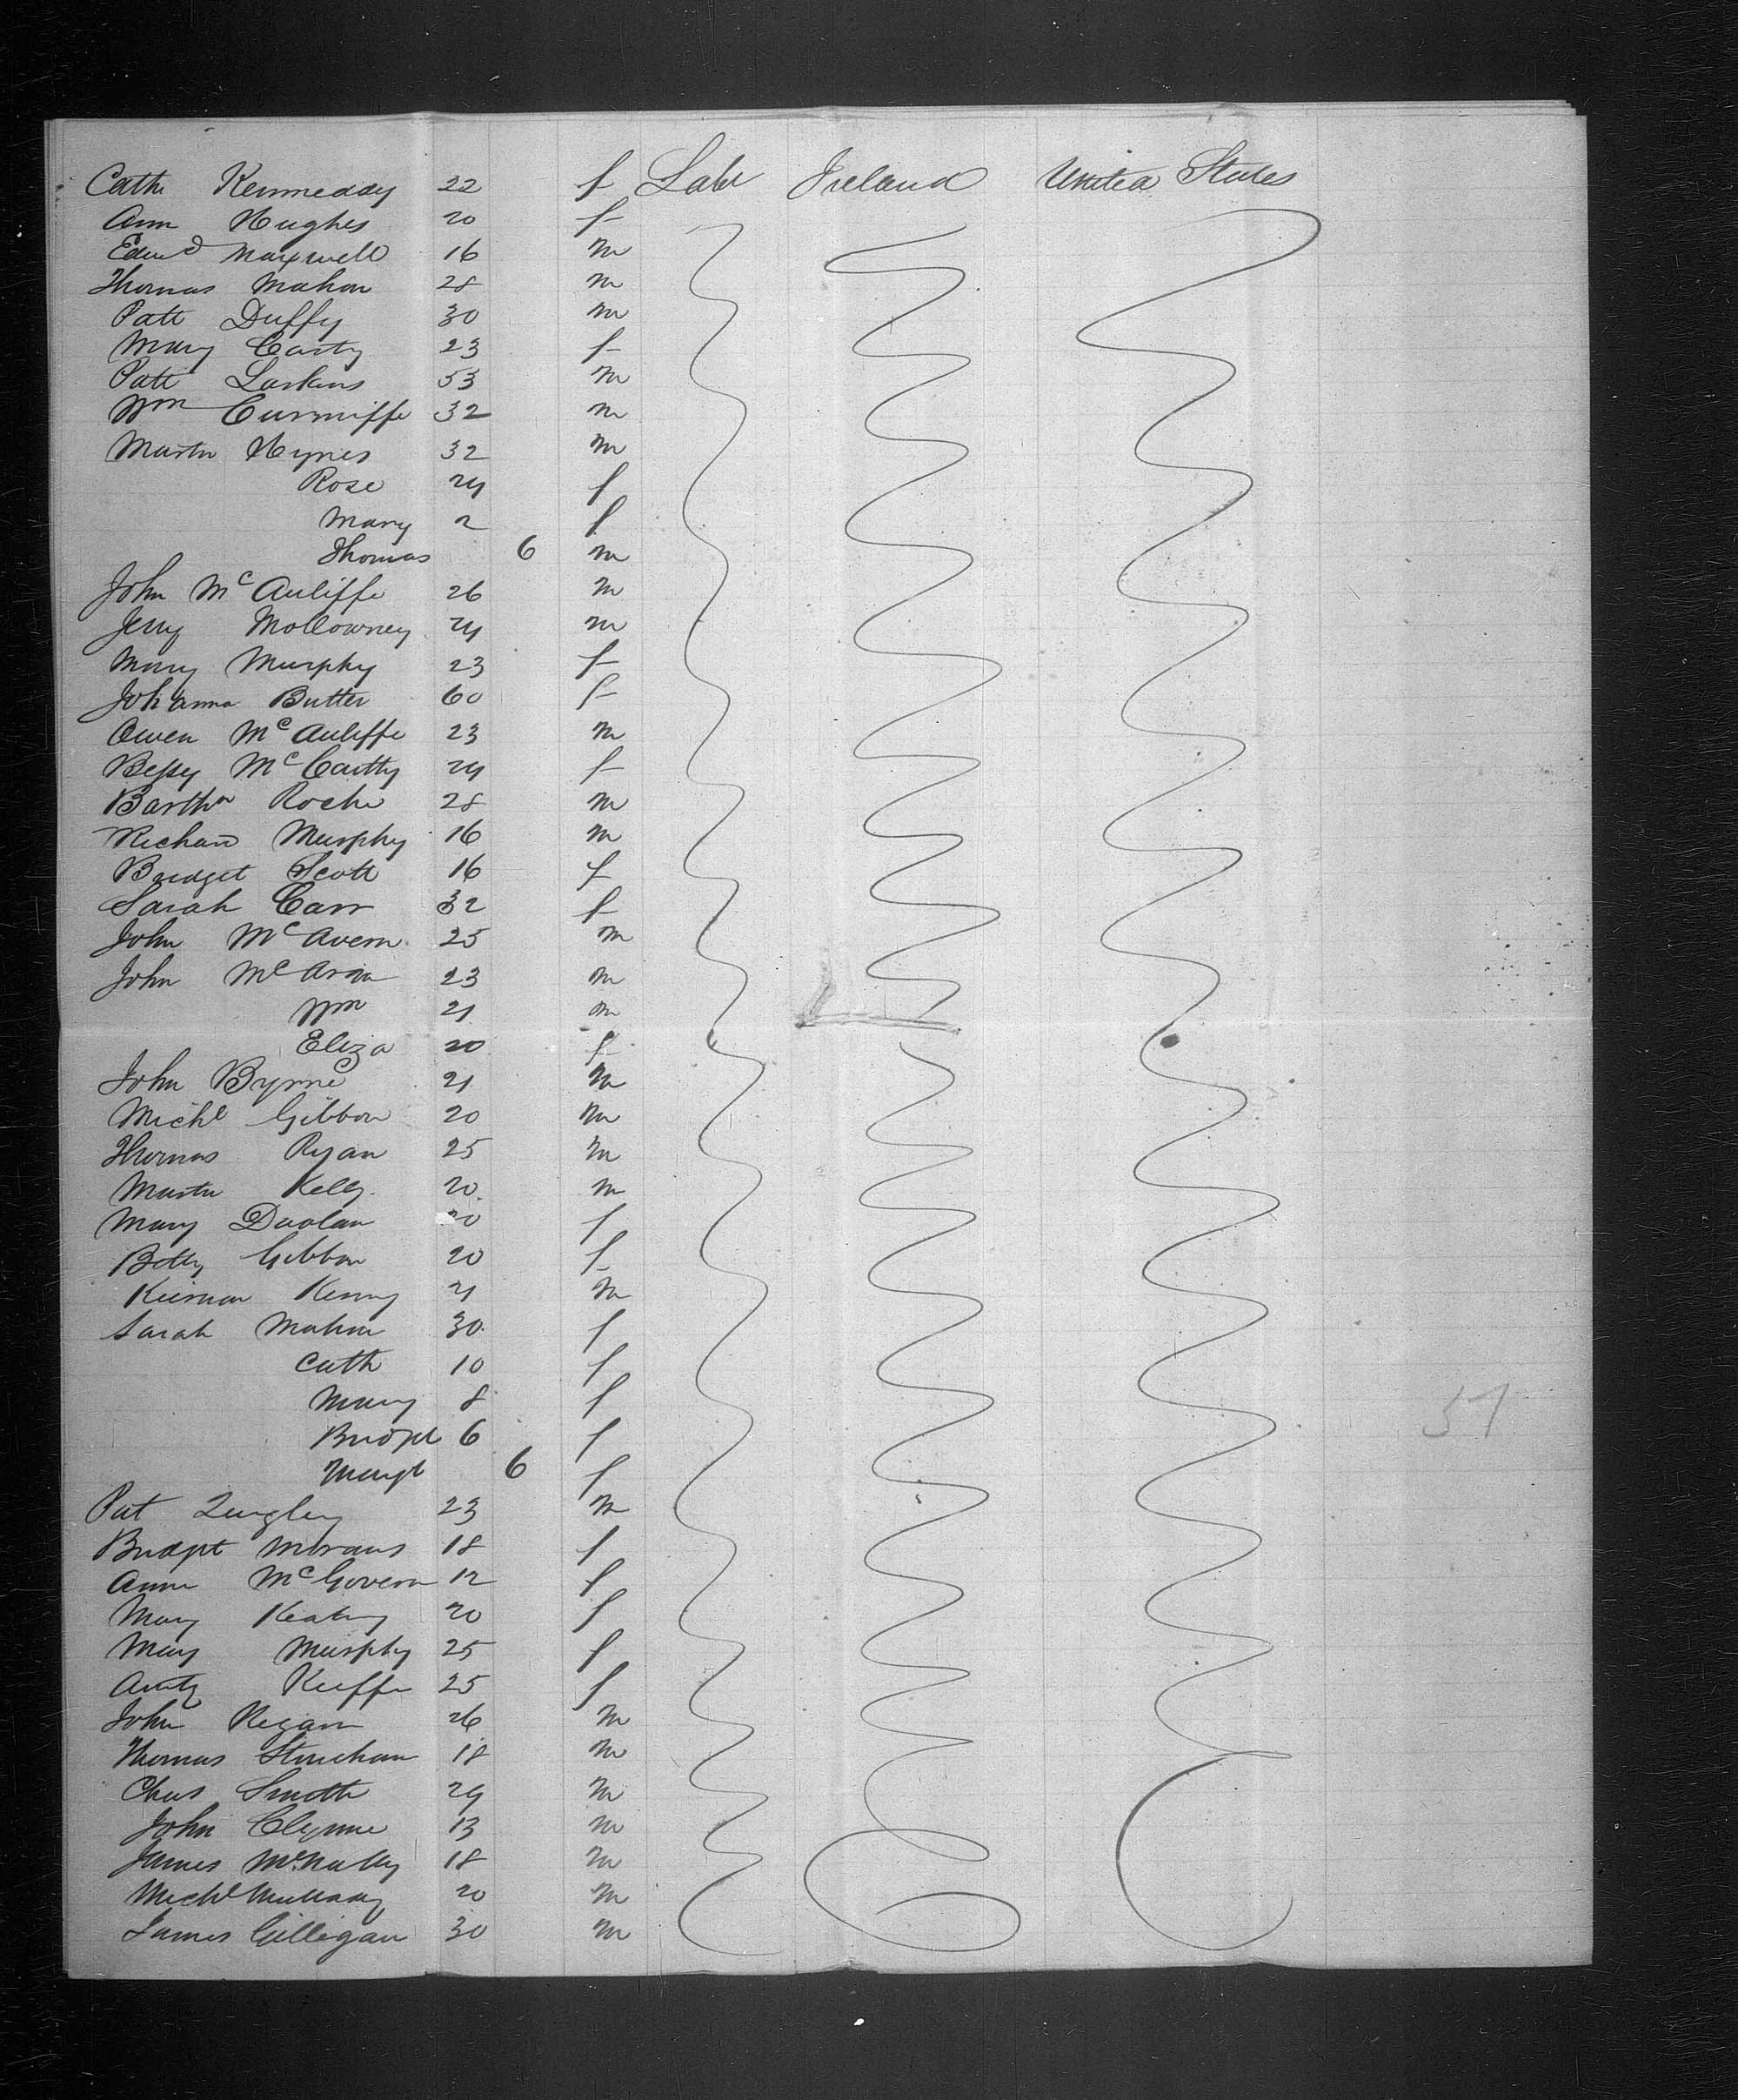 Cath Kennedy 22 f Labr Ireland United States
Ann Hughes 20 f
Edwd Maxwell 16 m
Thomas Mahon 28 m
Patt Duffy 30 m
Mary Carty 23 f
Patt Larkins 53 m
Wm Cunniffe 32 m
Martn Hynes 32 m
Rose 24 f
Mary 2 f
Thomas 6 m
John McAuliffe 26 m
Jerry Mollowney 24 m
Mary Murphy 23 f
Johanna Butter 60 f
Owen McAuliffe 23 m
Bessy McCartty 24 f
Barthw Roche 28 m
Richard Murphy 16 m
Bridget Scott 16 f
Sarah Carr 32 f
John McAvern 25 m
John 23 m
Wm 21 m
Eliza 20 f
John Byrne 21 m
Michl Gibbon 20 m
Thomas Ryan 25 m
Martn Kelly 20 m
Mary Doolan 20 f
Betty Gibbon 20 f
Kiernan Kenny 21 m
Sarah Mahon 30 f
Cath 10 f
Mary 8 f
Bridgt 6 f
Margt 6 f
Pat Quigley 23 m
Bridgt Morans 18 f
Anne McGovern 12 f
Mary Keating 20 f
Mary Murphy 25 f
Keiffe 25 f
John Regan 26 m
Thomas 18 m
Chas Smith 29 m
John Clynne 13 m
James McNally 18 m
Michl Mulladdy 20 m
James Gilligan 30 m
51